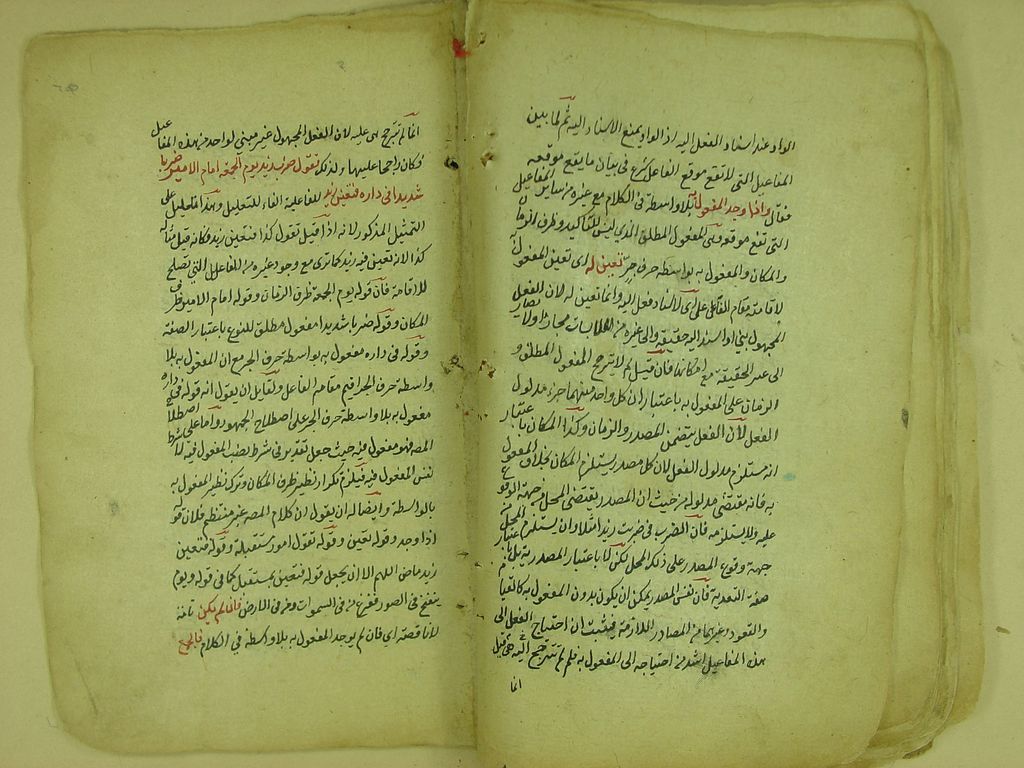 الواو عند اسناد الفعل اليه اذ الواو يمنع الاسناد اليه ثم لما بين
المفاعيل التى لا تقع موقع الفاعل شرع فى بيان ما يقع موقعه
فقال واذا وجد المفعول به بلا واسطة فى الكلام مع غيره من سائر المفاعيل
التى تقع موقعه يعنى المفعول المطلق الذى ليس للتأكيد وظرف الزمان
والمكان والمفعول به بواسطة حرف جر تعين له اى تعين المفعول به
لاقامته مقام الفاعل على اى الاسناد فعل اليه وانما تعين له لان الفعل
المجهول بنى اولا اسند اليه حقيقة والى غيره من الملابسات مجازا ولا يصار
الى غير الحقيقة مع امكانها فان قيل لم لا ترجح المفعول المطلق و
الزمان على المفعول به باعتبار ان كل واحد منهما جزء مدلول
الفعل لان الفعل يتضمن المصدر والزمان وكذا المكان باعتبار
انه مستلزم مدلول الفعل لان كل مصدر يستلزم المكان بخلاف المفعول
به فانه يقتضى مدلوله من حيث ان المصدر يقتضى المحل من جهة الوقوع
عليه ولا يستلزمه فان الضرب فى ضربت زيدا مثلا وان يستلزم المحل
جهة وقوع المصدر على ذلك المحل لكن لا باعتبار المصدرية بل باعتبار
صفة التعدية فان نفس المصدر يمكن ان يكون بدون المفعول به كالقيام
والقعود وغيرهما من المصادر اللازمة فثبت ان احتياج الفعل الى
هذه المفاعيل اشد من احتياجه الى المفعول به فلم لم تترجح اليه قيل
انما
انما لم تترجح هى عليه لان الفعل المجهول غير مبنى لواحد من هذه المفاعيل
فكان راجحا عليها ولذلك تقول ضرب زيد يوم الجمعة امام الامير ضربا
شديدا فى داره فتعين زيد للفاعلية الفاء للتعليل وهذا تعليل على
التمثيل المذكور لانه اذا قيل تقول كذا فتعين زيد فكانه قيل مثاله
كذا لانه تعين فيه زيد كما ترى مع وجود غيره من المفاعيل التى تصلح
للاقامة فان قوله يوم الجمعة ظرف الزمان وقوله امام الامير ظرف
المكان وقوله ضربا شديدا مفعول مطلق للنوع باعتبار الصفة
وقوله فى داره مفعول به بواسطة حرف الجر مع ان المفعول به بلا
واسطة حرف الجر اقيم مقام الفاعل ولقائل ان يقول انه قوله فى داره
مفعول به بلا واسطة حرف الجر على اصطلاح الجمهور واما على اصطلاح
المصـ فهو مفعول فيه حيث جعل تقدير فى شرط نصب المفعول فيه لا شرط
نفس المفعول فيه فيلزم تكرار نظير ظرف المكان وترك نظير المفعول به
بالواسطة وايضا له ان يقول ان كلام المصـ غير منتظم فلان قوله
اذا وجد وقوله تعين وقوله تقول امور مستقبلة وقوله فتعين
زيد ماض اللهم الا ان يجعل قوله فتعين بمستقبل كما فى قوله ويوم
ينفخ فى الصور ففزع من فى السموات ومن فى الارض فان لم يكن تامة
لا ناقصة اى فان لم يوجد المفعول به بلا واسطة فى الكلام فالجميع